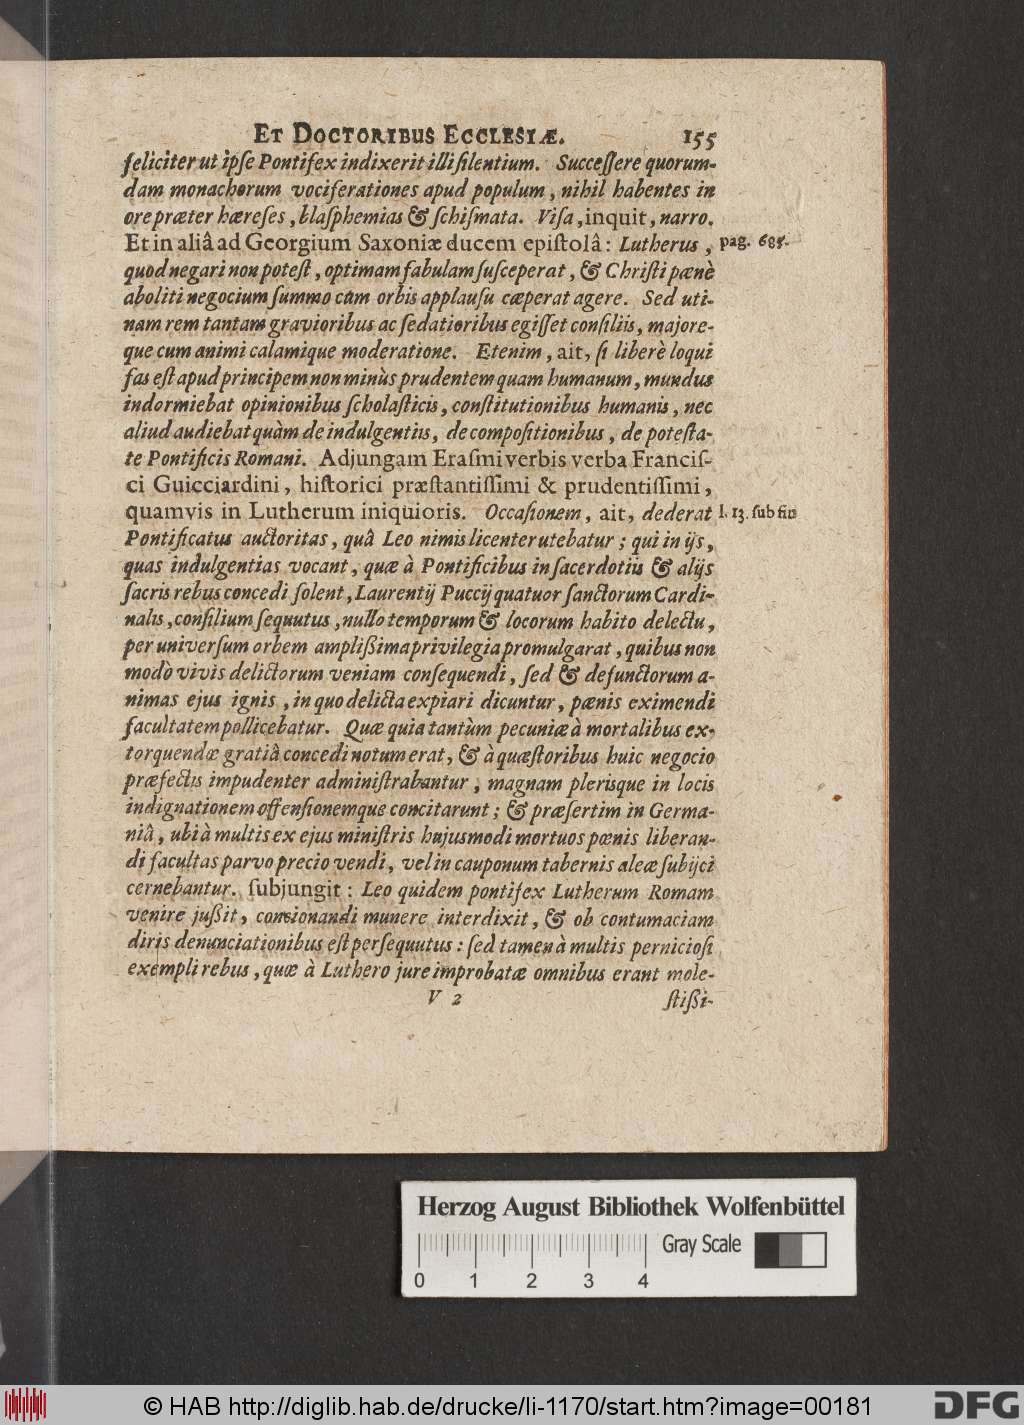 ET DOCTORIBUS ECCLESIÆ. 155
feliciter ut ipſe Pontifex indixerit illi ſilentium. Succeſſere quorum-
dam monachorum vociferationes apud populum, nihil habentes in
ore præter hæreſes, blaſphemias & ſchiſmata. Viſa, inquit, narro.
Et in aliâ ad Georgium Saxoniæ ducem epiſtolâ: Lutherus, pag. 685.
quod negari non poteſt, optimam fabulam ſuſceperat, & Chriſti pænè
aboliti negocium ſummo cum orbis applauſu cæperat agere. Sed uti-
nam rem tantam gravioribus ac ſedatioribus egiſſet conſiliis, majore-
que cum animi calamique moderatione. Etenim, ait, ſi liberè loqui
fas eſt apud principem non minùs prudentem quam humanum, mundus
indormiebat opinionibus ſcholaſticis, conſtitutionibus humanis, nec
aliud audiebat quàm de indulgentiis, de compoſitionibus, de poteſta-
te Pontificis Romani. Adjungam Eraſmi verbis verba Franciſ-
ci Guicciardini, hiſtorici præſtantiſſimi & prudentiſſimi,
quamvis in Lutherum iniquioris. Occaſionem, ait, dederat l. 13. ſub fin
Pontificatus auctoritas, quâ Leo nimis licenter utebatur; qui in ijs,
quas indulgentias vocant, quæ à Pontificibus in ſacerdotiis & alijs
ſacris rebus concedi ſolent, Laurentij Puccij quatuor ſanctorum Cardi-
nalis, conſilium ſequutus, nullo temporum & locorum habito delectu,
per univerſum orbem ampliſſima privilegia promulgarat, quibus non
modò vivis delictorum veniam conſequendi, ſed & defunctorum a-
nimas ejus ignis, in quo delicta expiari dicuntur, pænis eximendi
facultatem pollicebatur. Quæ quia tantùm pecuniæ à mortalibus ex-
torquendæ gratiâ concedi notum erat, & à quæſtoribus huic negocio
præfectis impudenter adminiſtrabantur, magnam plerisque in locis
indignationem offenſionemque concitarunt; & præſertim in Germa-
niâ, ubi à multis ex ejus miniſtris hujusmodi mortuos pænis liberan-
di facultas parvo precio vendi, vel in cauponum tabernis aleæ ſubijci
cernebantur. ſubjungit: Leo quidem pontifex Lutherum Romam
venire juſſit, concionandi munere interdixit, & ob contumaciam
diris denunciationibus eſt perſequutus: ſed tamen à multis pernicioſi
exempli rebus, quæ à Luthero jure improbatæ omnibus erant mole-
V 2 ſtiſſi-
Herzog August Bibliothek Wolfenbüttel
Gray Scale
0 1 2 3 4
© HAB http://diglib.hab.de/drucke/li-1170/start.htm?image=00181
DFG